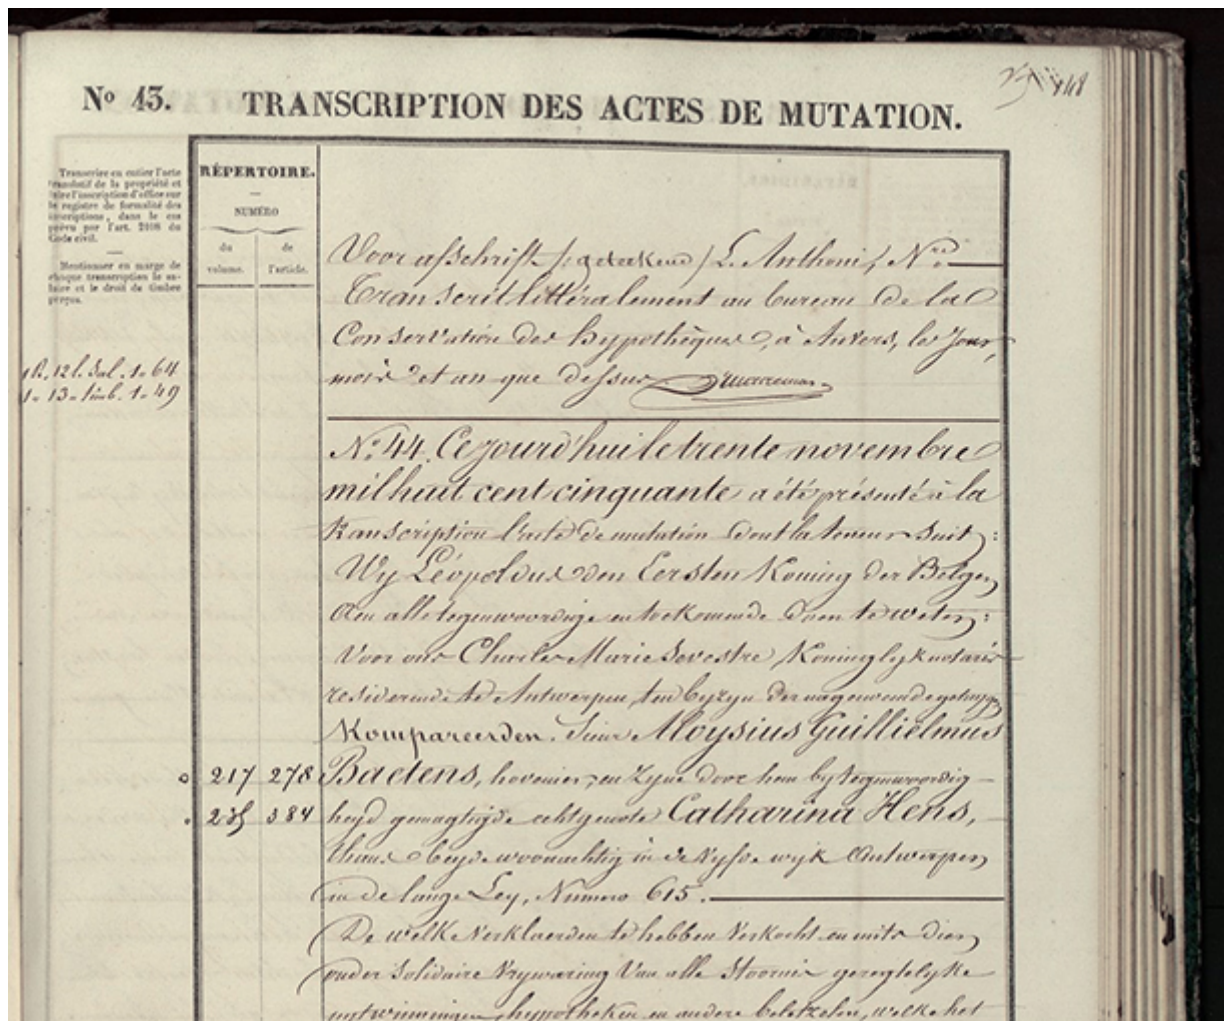 Nº 43. TRANSCRIPTION DES ACTES DE MUTATION.
448
Transcrire en entier l'acte
translatif de la propriété et
faire l'inscription d'office sur
le registre de formalité des
inscriptions, dans le cas
prévu par l'art. 2108 du
Code civil.
Mentionner en marge de
chaque transcription le sa-
laire et le droit de timbre
perçus.
RÉPERTOIRE.
NUMÉRO
du volume.
de l'article.
Voor afschrift /:getekend/ L. Anthoni, Nis
Transcrit littéralement au bureau de la
Conservation des hypothèques, à Anvers, les Jour,
mois et an que dessus
1 R. 12 l. Sal. 1.64
1. 13. timb. 1.49
Nº 44. Cejourd'hui le trente novembre
mil huit cent cinquante a été présenté à la
transcription l'acte de mutation dont la teneur suit:
Wy Léopoldus den Eersten Koning der Belgen
Aen alle tegenwoordige en toekomende doen te weten:
Voor ons Charles Marie Sevestre Koninglyk notaris
residerende te Antwerpen, ten byzyn der nagenoemde getuygen
Kompareerden. Sieur Aloysius Guillielmus
217 278 Baetens, hovenier, en zyne door hem by tegenwoordig
235 384 heyd gemagtigde echtgenote Catharina Hens,
thans beyde woonachtig in de vyfde wyk Antwerpen
in de lange Ley, Numero 615.
De welke verklaerden te hebben verkocht en mits dien
onder Solidaire Vrywaring Van alle Stoornis geregtelyke
ontwinningen, hypotheken en andere beletselen, welke het